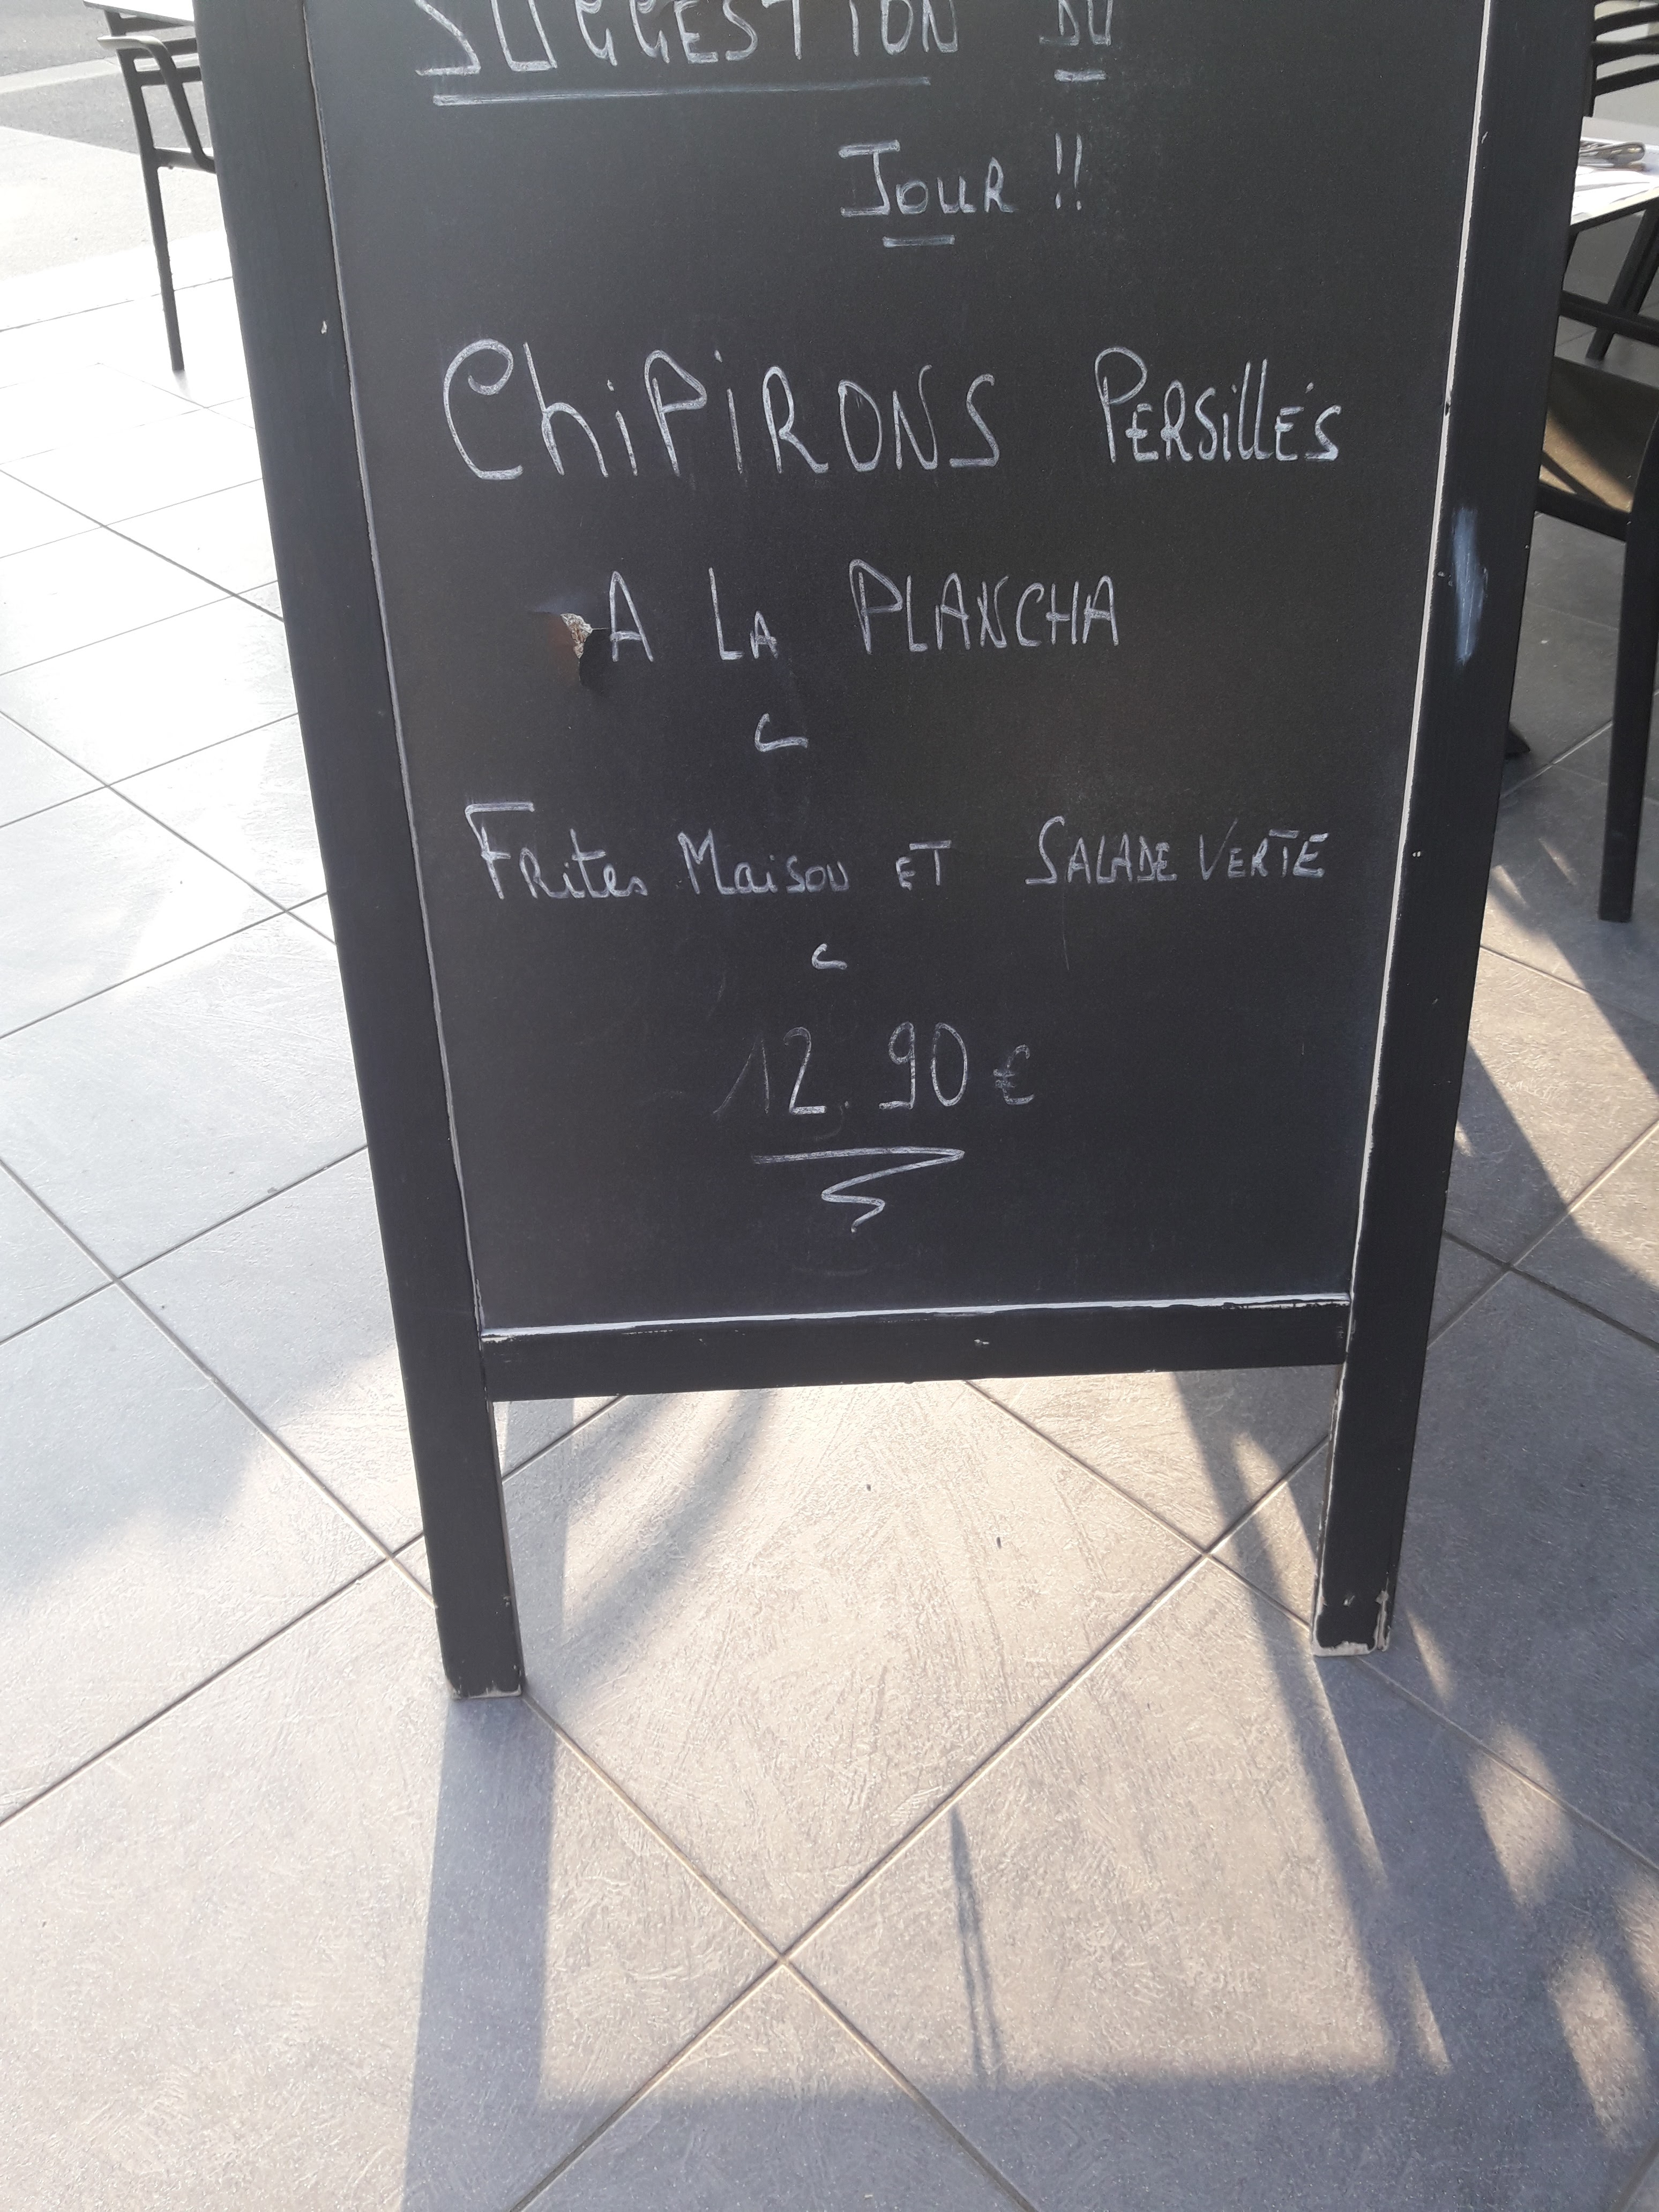 SUGGESTION DU
JOUR !!
ChiPiRONS PERSillÉS
A LA PLANCHA
FRites MaisoN ET SALADE VERTE
12.90 €